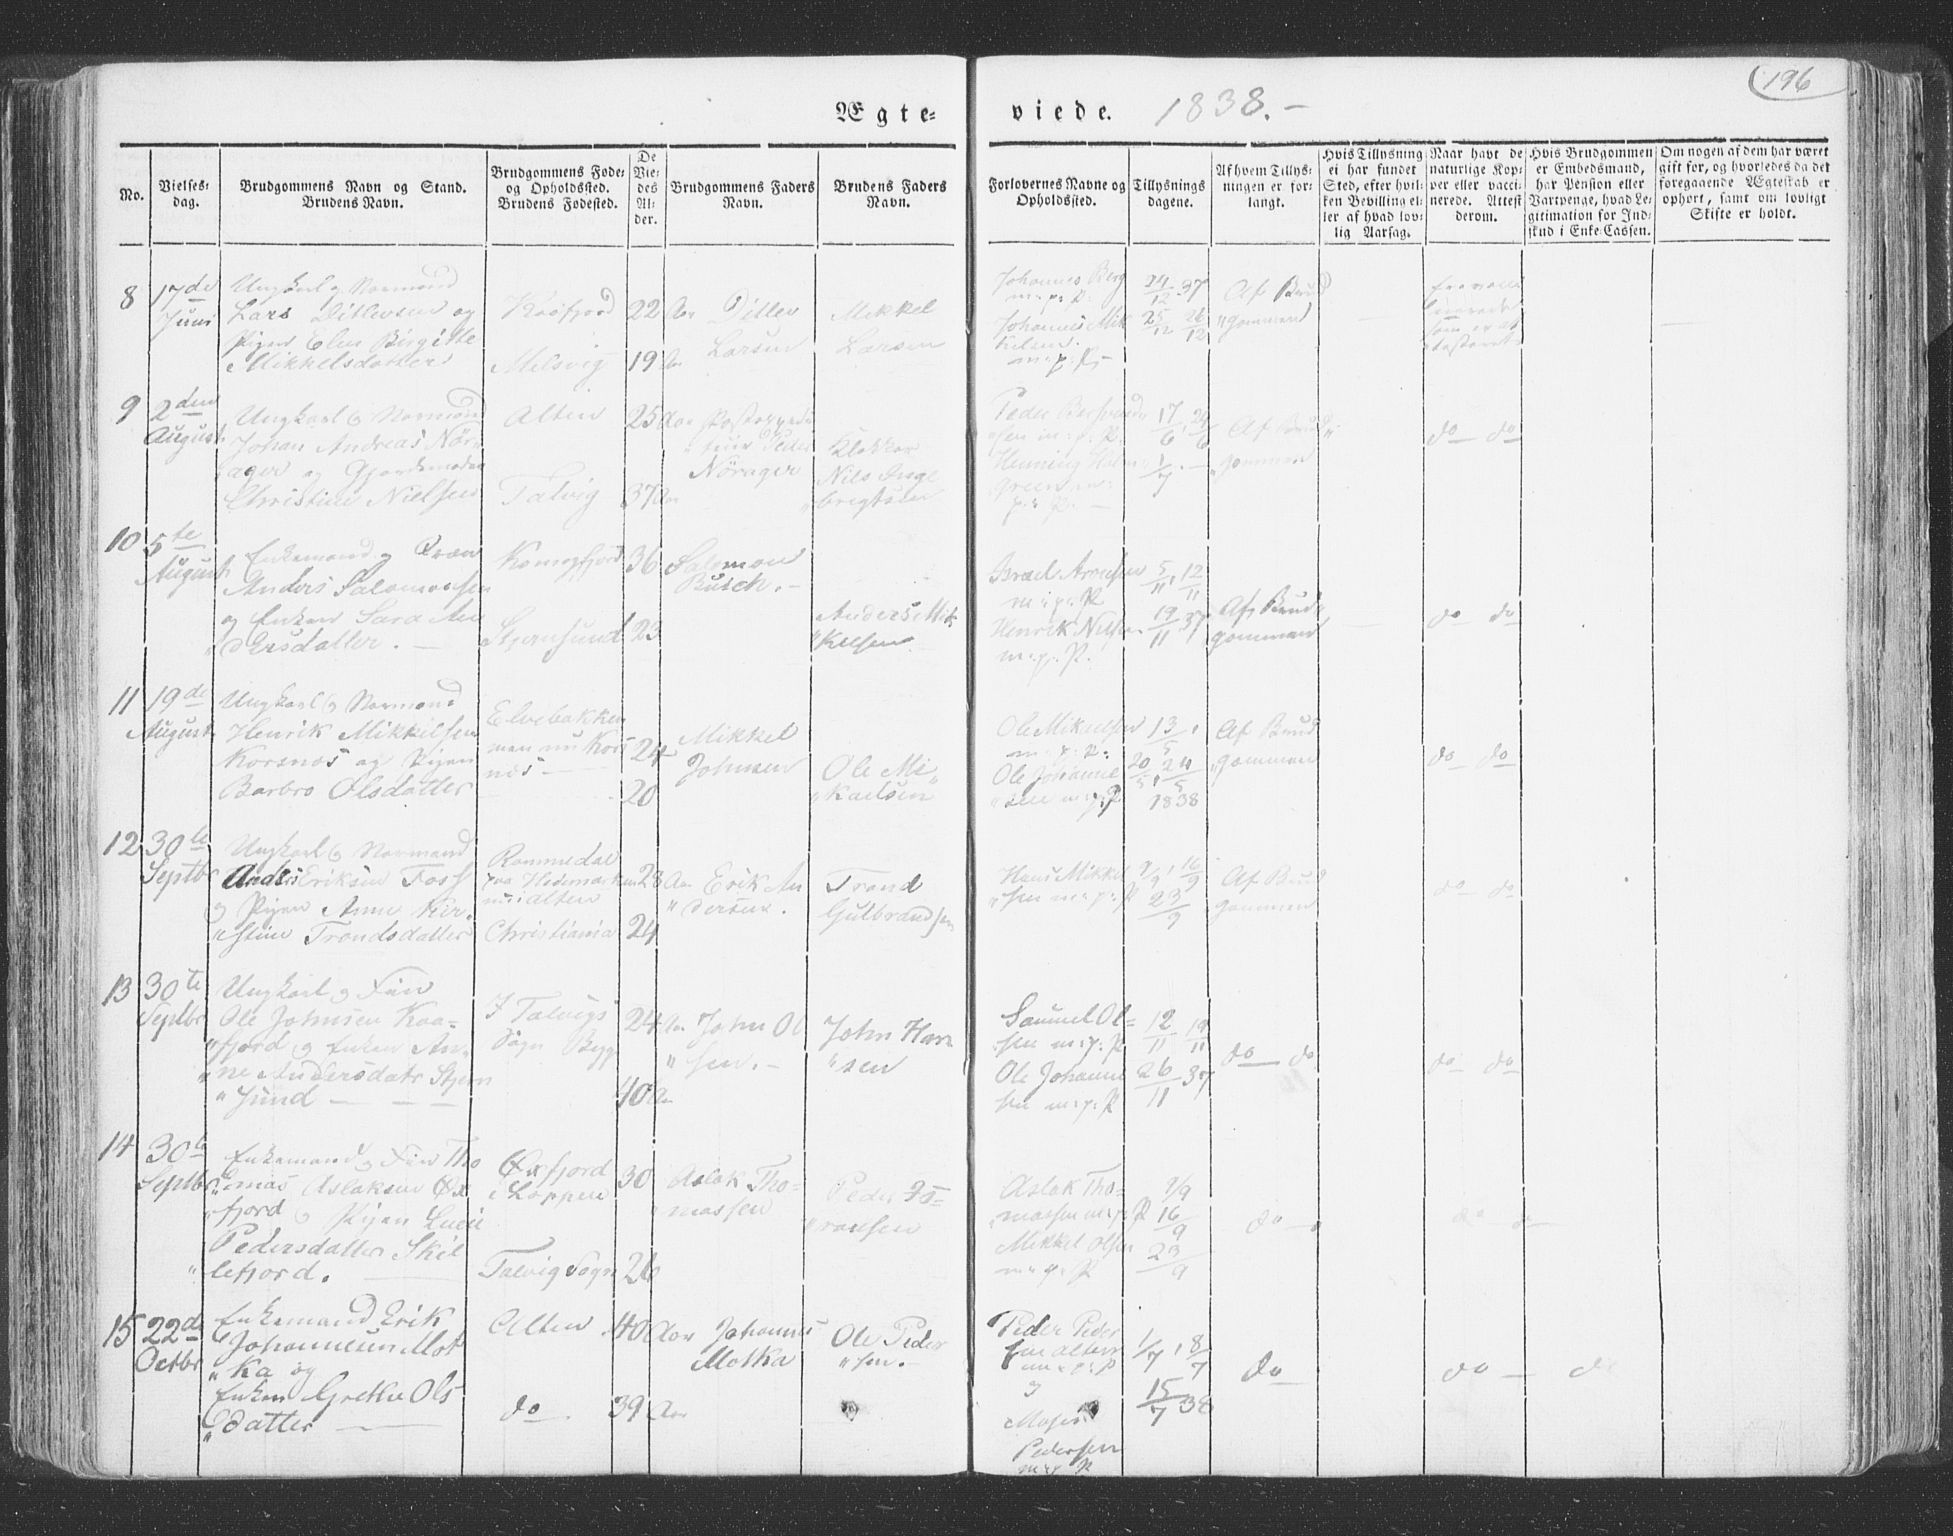 196
Ægte=
viede. 1838.-
No.
Vielses-
dag.
Brudgommens Navn og Stand.
Brudens Navn.
Brudgommens Føde-
og Opholdssted.
Brudens Fødested.
De
Vie-
des
Al-
der.
Brudgommens Faders
Navn.
Brudens Faders
Navn.
Forlovernes Navne og
Opholdssted.
Tillysnings
dagene.
Af hvem Tillys-
ningen er for-
langt.
Hvis Tillysning
ei har fundet
Sted, efter hvil-
ken Bevilling el-
ler af hvad lov-
lig Aarsag.
Naar havt de
naturlige Kop-
per eller vacci-
nerede. Attest
derom.
Hvis Brudgommen
er Embedsmand,
har Pension eller
Vartpenge, hvad Le-
gitimation for Ind-
skud i Enke-Cassen.
Om nogen af dem har været
gift før, og hvorledes da det
foregaaende Ægteskab er
ophørt, samt om lovligt
Skifte er holdt.
8
17de
Juni
Ungkarl og Normand
Lars Ditlevsen og
Pigen Elen Birgitte
Mikkelsdatter
Kaafjord
Melsvig
22 Aar
19 Aar
Ditlev
Larsen
Mikkel
Larsen
Johannes Berg
m: p: P:
Johannes Mik
kelsen
m: p: P-
24/12 37
25/12 26/12
Af Brud
"gommen
9
2den
August
Ungkarl og Normand
Johan Andreas Nør-
ager og
Christine Nielsen
Alten
Talvig
25 Aar
37 Aar
Nørager
Klokker
Nils Inge
"brigtsen
Peder
sen m: p: P.
Henning Holm
green m:
p: P. -
17/6, 24/6
1/7 -
Af Brud
"gommen
do do
10
5te
August
Enkemand og Qvæn
Anders Salomonsen
og Enken Sara An
"dersdatter. -
Komagfjord
Stjernsund
36
23
Salomon
Busch. -
Anders Mik
"kelsen
Israel Arnesen
m: p: P
Henrik Nilsen
m: p: P.
5/11, 12/11
19/11 37
Af Brud
gommen
do do
11
19de
August
Ungkarl og Normand
Henrik Mikkelsen
Korsnæs og Pigen
Barbro Olsdatter
Elvebakken
men nu Kors
næs -
24
20
Mikkel
Johnsen
Ole Mi
"kaelsen
Ole Mikaelsen
m: p: P:
Ole Johanne
"sen m: p: P
13/5,
20/5, 24/5
1838
Af Brud
"gommen
do do
12
30te
Septbr
Ungkarl og Normand
Anders Eriksen Foss
og Pigen Anne Kir-
"stine Trondsdatter
Rommedal
paa Hedemarken
nu i alten
Christiania
28 Aar
24
Erik An
"dersen.
Trond
Gulbrandsen
Hans Mikkel
"sen m: p: P
9/9, 16/9
23/9
Af Brud
gommen
do do
13
30te
Septbr
Ungkarl og Fin
Ole Johnsen Kaa-
"fjord og Enken An-
"ne Andersdatr Stjern
"sund - - -
I Talvigs
Sogn Byg
24 Aar
40 Aar
John Ol
"sen. -
John Han
"sen
Samuel Ol=
"sen m: p: P
Ole Johanne
sen m: p: P
12/11, 19/11
26/11 37
do do
do do
14
30te
Septbr
Enkemand og Fin Tho
"mas Aslaksen Øx
"fjord og Pigen
Pedersdatter Skil
"lefjord.
Øxfjord
i Loppen
Talvig Sogn
30
26
Aslak Tho-
"massen
Peder
"ransen
Aslak Tho-
"massen m: p: P
Mikkel Olsen
m: p: P
9/9
16/9
23/9
do
do do
15
22de
Octbr
Enkemand Erik
Johannesen Mot
"ka og
Enken Grethe Ols
"datter -
Alten
do
40 Aar
39 Aar
Johannes
Motka
Ole Peder
"sen. -
Peder Peder
sen alten
m: p: P
og
Moses
Pedersen
m: p: P
1/7, 8/7
15/7 38
do
do
do